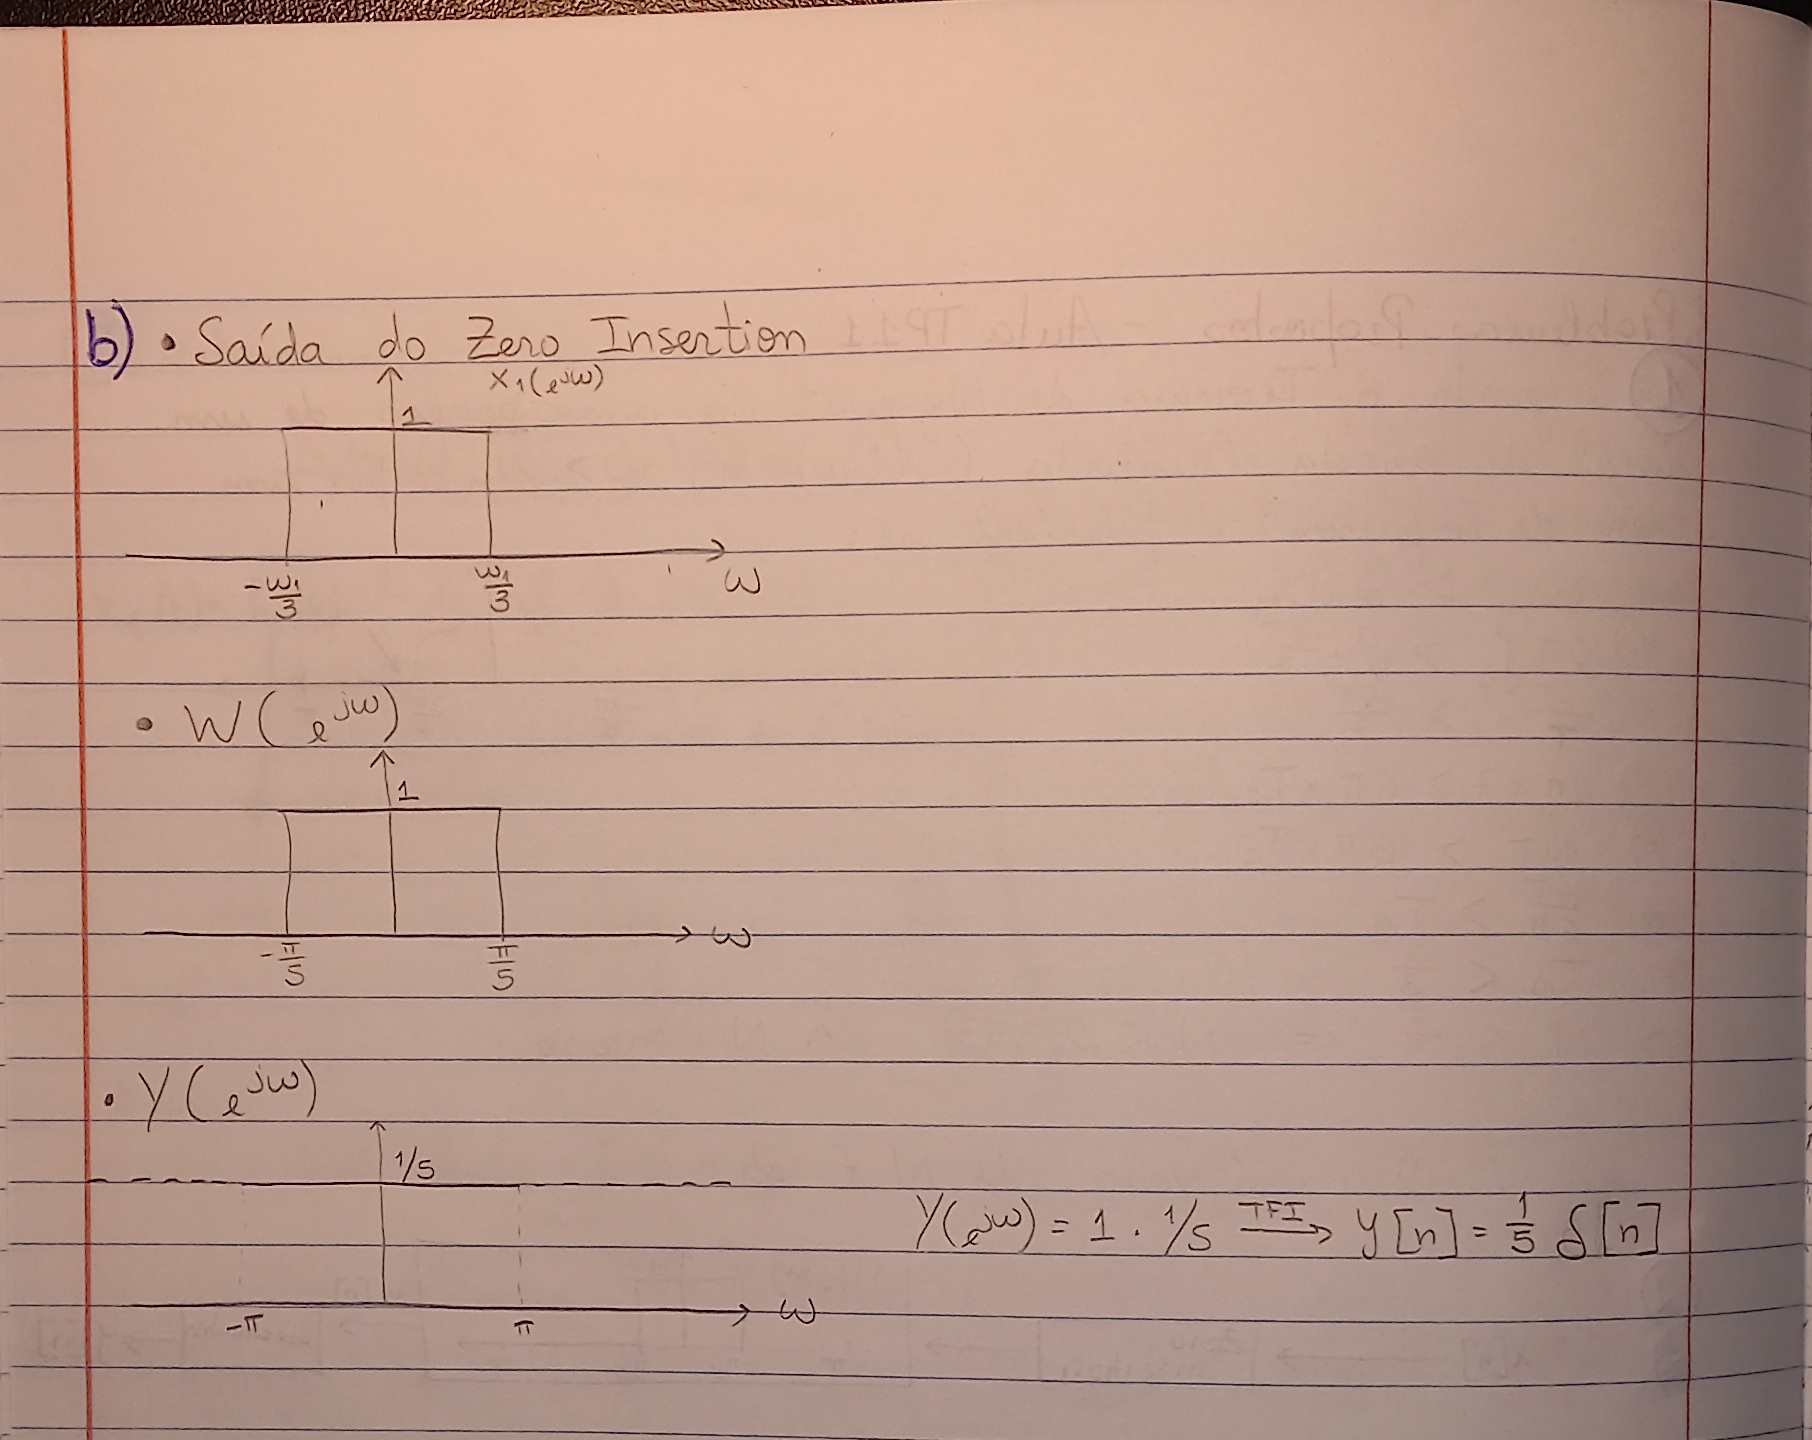 b) • Saída do Zero Insertion
X₁(e^jω)
1
-ω₁/3 ω₁/3 ω
• W(e^jω)
1
-π/5 π/5 ω
• Y(e^jω)
1/5
Y(e^jω) = 1 . 1/5 TFI→ y[n] = 1/5 δ[n]
-π π ω